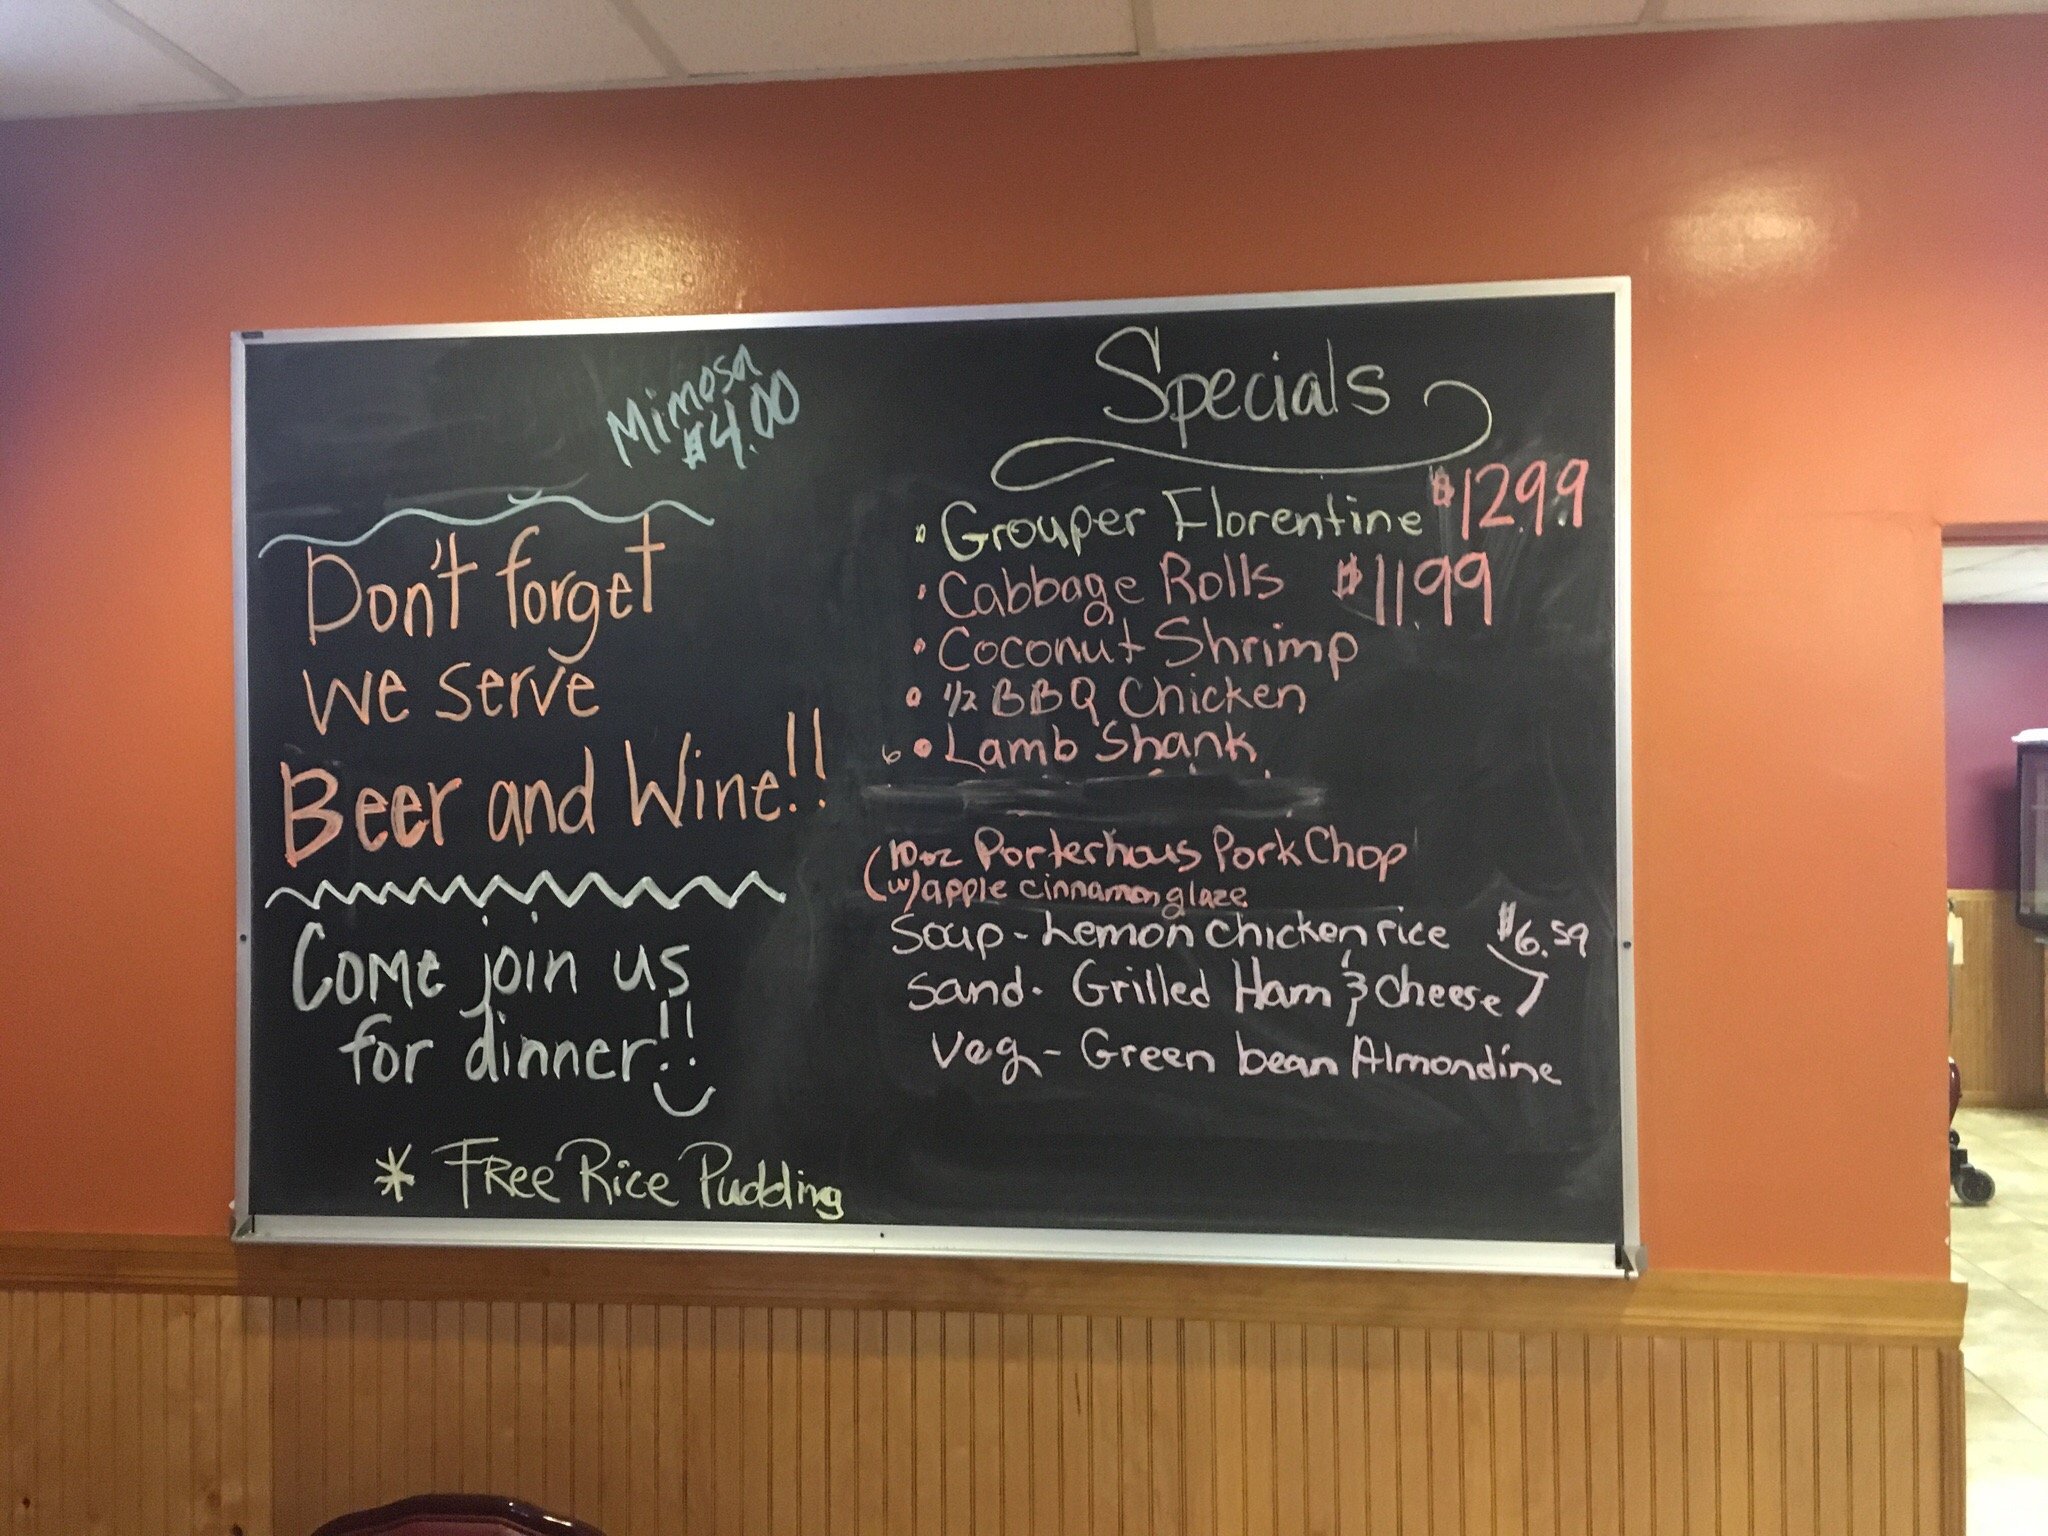 Mimosa
$4.00
Don't forget
we serve
Beer and Wine!!
Come join us
for dinner!!
* Free Rice Pudding
Specials
• Grouper Florentine $12.99
• Cabbage Rolls $11.99
• Coconut Shrimp
• 1/2 BBQ Chicken
• Lamb Shank
(10oz Porterhous Pork Chop
(w/ apple cinnamon glaze
Soup - Lemon Chicken rice $6.59
Sand - Grilled Ham & Cheese
Veg - Green bean Almondine